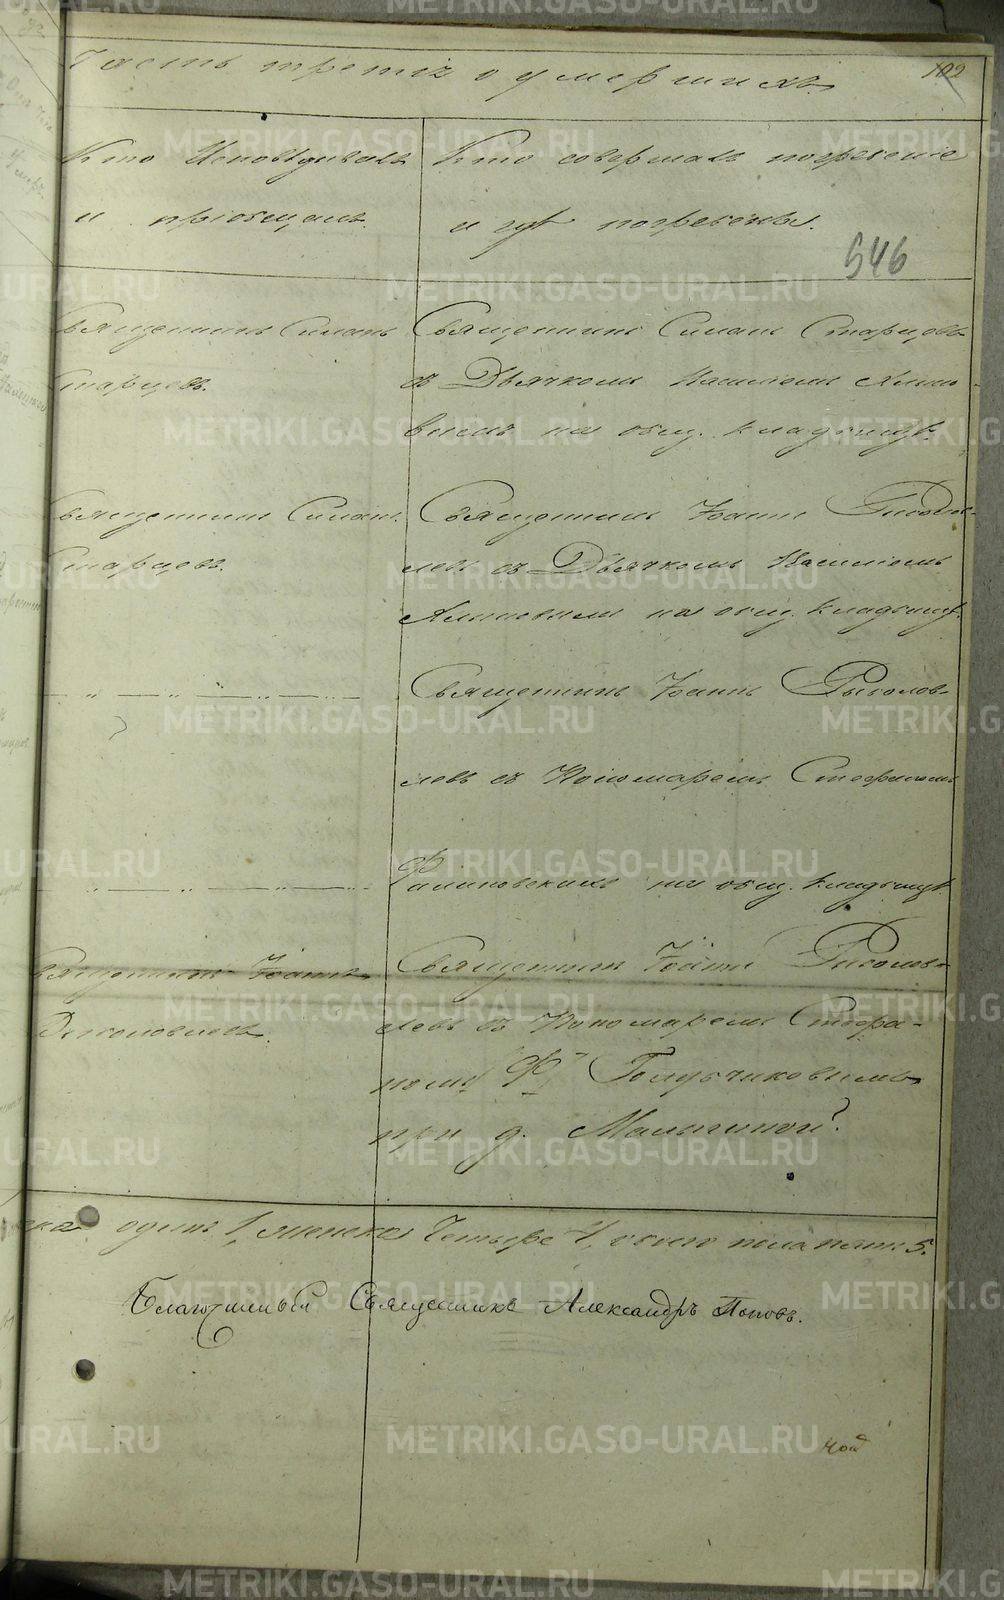 Часть третія о умершихъ.
102
Кто Исповѣдывалъ
и пріобщалъ.
Кто совершалъ погребеніе
и гдѣ погребены.
546
Священникъ Симонъ
Старцевъ.
Священникъ Симонъ Старцовъ
съ Дьячкомъ Василіемъ
на общ. кладбищѣ.
Священникъ Симонъ
Старцевъ.
Священникъ Іоаннъ
левъ съ Дьячкомъ Василіемъ
на общ. кладбищѣ.
Священникъ Іоаннъ Рыболов-
левъ съ Пономаремъ Стефаномъ
на общ. кладбищѣ.
Священникъ Іоаннъ
Рыболовлевъ.
Священникъ Іоаннъ Рыболов-
левъ съ Пономаремъ Стефа-
номъ Ф. Голубчиковымъ
при д. Мальгиной.
одинъ 1, женска Четыре 4, обоего пола пять 5.
Благочинный Священникъ Александръ Поповъ.
METRIKI.GASO-URAL.RU